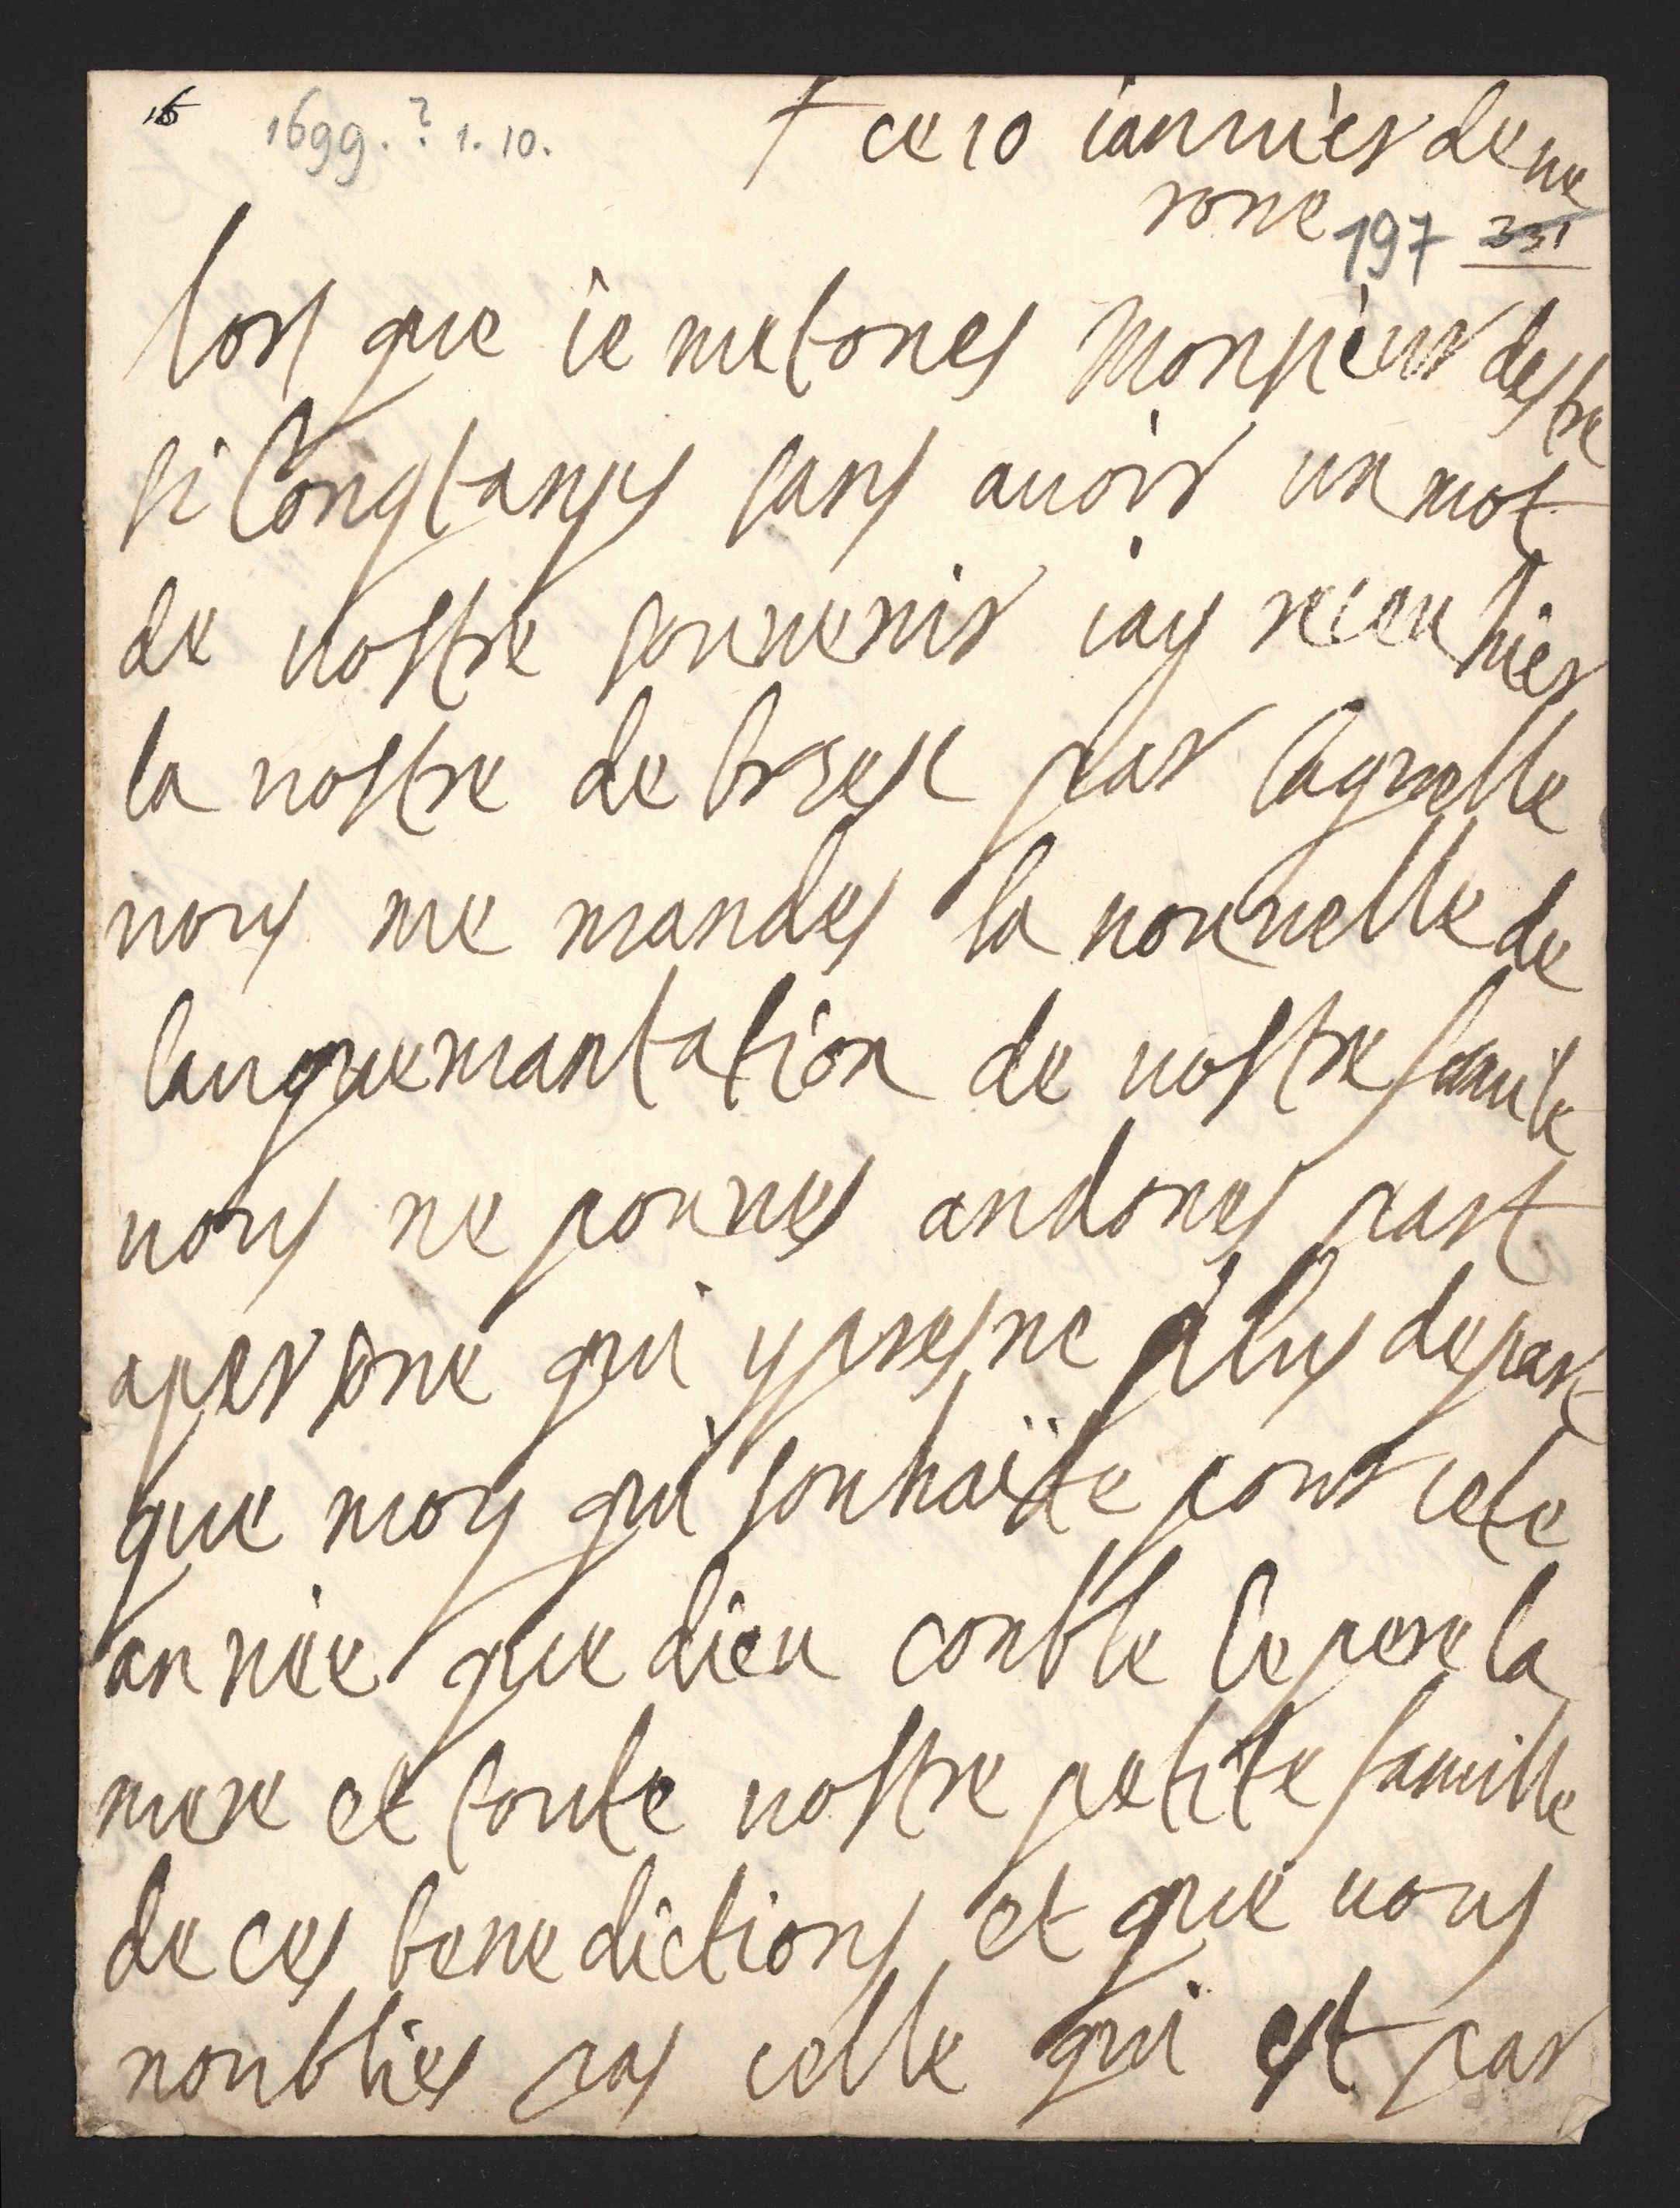 16 1699.? 1. 10. + ce 10 ianuier de ue
rone 197 331
lors que ie metones Monsieur destre
si longtanps sans auoir un mot
de vostre souuenir iay receu hier
la vostre de par laquelle
vous me mandes la nouuelle de
lauguemantation de vostre famile
vous ne pouues andoner part
apersone qui y presne plus depart
que moy qui souhaite pour cete
année que dieu comble le pere la
mere et toute vostre petite famille
de ces benedictions et que vous
noublies pas celle qui est par